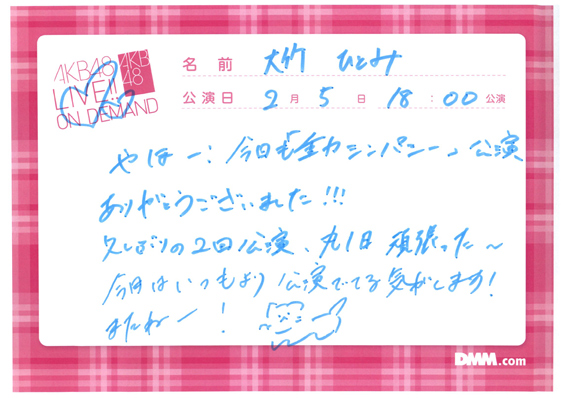 AKB48
LIVE!!
ON DEMAND
AKB
48
名前 大竹 ひとみ
公演日 2月5日 18:00公演
やほー! 今日も「全力シンパシー」公演
ありがとうございました!!!
久しぶりの2回公演、丸1日 頑張った〜
今月はいつもより公演でてる気がします!
またねー!
DMM.com